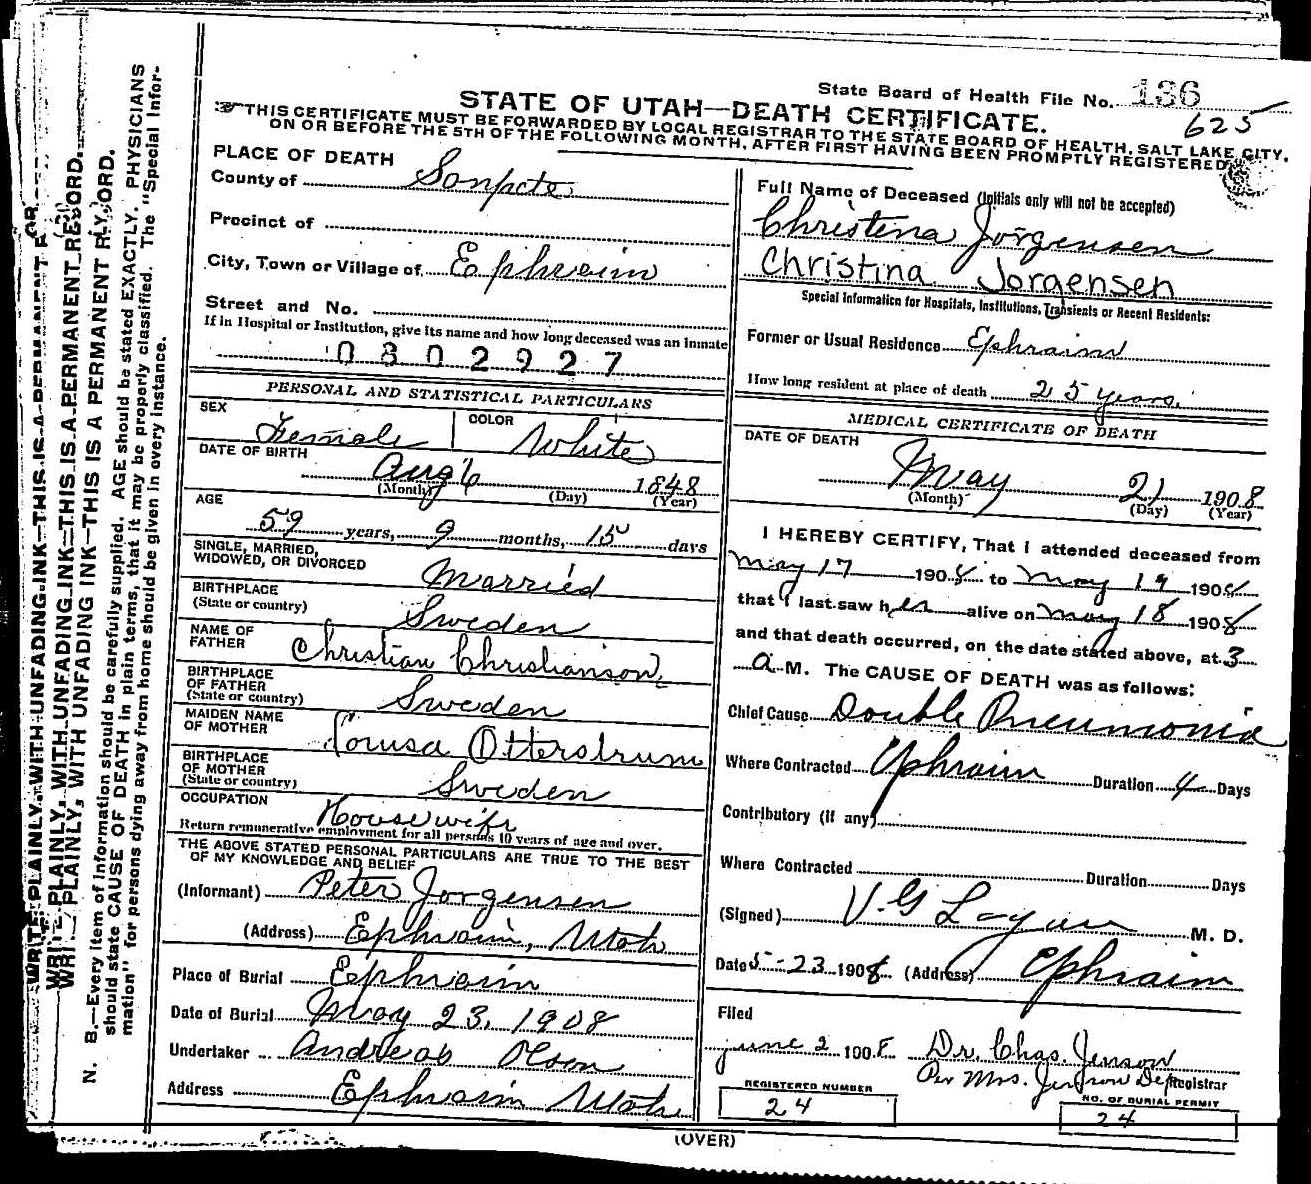 State Board of Health File No. 136
625
STATE OF UTAH—DEATH CERTIFICATE.
THIS CERTIFICATE MUST BE FORWARDED BY LOCAL REGISTRAR TO THE STATE BOARD OF HEALTH, SALT LAKE CITY,
ON OR BEFORE THE 5TH OF THE FOLLOWING MONTH, AFTER FIRST HAVING BEEN PROMPTLY REGISTERED
PLACE OF DEATH
County of Sanpete
Precinct of
City, Town or Village of Ephraim
Street and No.
If in Hospital or Institution, give its name and how long deceased was an inmate
0802927
PERSONAL AND STATISTICAL PARTICULARS
SEX Female COLOR White
DATE OF BIRTH
Aug 6 1848
(Month) (Day) (Year)
AGE
59 years, 9 months, 15 days
SINGLE, MARRIED,
WIDOWED, OR DIVORCED Married
BIRTHPLACE
(State or country) Sweden
NAME OF
FATHER Christian Christianson
BIRTHPLACE
OF FATHER
(State or country) Sweden
MAIDEN NAME
OF MOTHER Otterstrum
BIRTHPLACE
OF MOTHER
(State or country) Sweden
OCCUPATION Housewife
Return remunerative employment for all persons 10 years of age and over.
THE ABOVE STATED PERSONAL PARTICULARS ARE TRUE TO THE BEST
OF MY KNOWLEDGE AND BELIEF
(Informant) Peter Jorgensen
(Address) Ephraim, Utah
Place of Burial Ephraim
Date of Burial May 23, 1908
Undertaker Andreas Olson
Address Ephraim Utah
Full Name of Deceased (Initials only will not be accepted)
Christena Jorgensen
Christina Jorgensen
Special Information for Hospitals, Institutions, Transients or Recent Residents:
Former or Usual Residence Ephraim
How long resident at place of death 25 years.
MEDICAL CERTIFICATE OF DEATH
DATE OF DEATH
May 21 1908
(Month) (Day) (Year)
I HEREBY CERTIFY, That I attended deceased from
May 17 1908 to May 19 1908
that I last saw her alive on May 18 1908
and that death occurred, on the date stated above, at 3
a M. The CAUSE OF DEATH was as follows:
Chief Cause Double Pneumonia
Where Contracted Ephraim Duration 4 Days
Contributory (if any)
Where Contracted Duration Days
(Signed) V. G M. D.
Date 5-23 1908 (Address) Ephraim
Filed
June 2 1908 Dr. Chas. Jenson
Per Mrs. Jenson Dep Registrar
REGISTERED NUMBER
24
NO. OF BURIAL PERMIT
24
(OVER)
WRITE PLAINLY, WITH UNFADING INK—THIS IS A PERMANENT
WRITE PLAINLY, WITH UNFADING INK—THIS IS A PERMANENT RECORD.
WRITE PLAINLY, WITH UNFADING INK—THIS IS A PERMANENT
N. B.—Every item of information should be carefully supplied. AGE should be stated EXACTLY. PHYSICIANS
should state CAUSE OF DEATH in plain terms, that it may be properly classified. The "Special Infor-
mation" for persons dying away from home should be given in every instance.